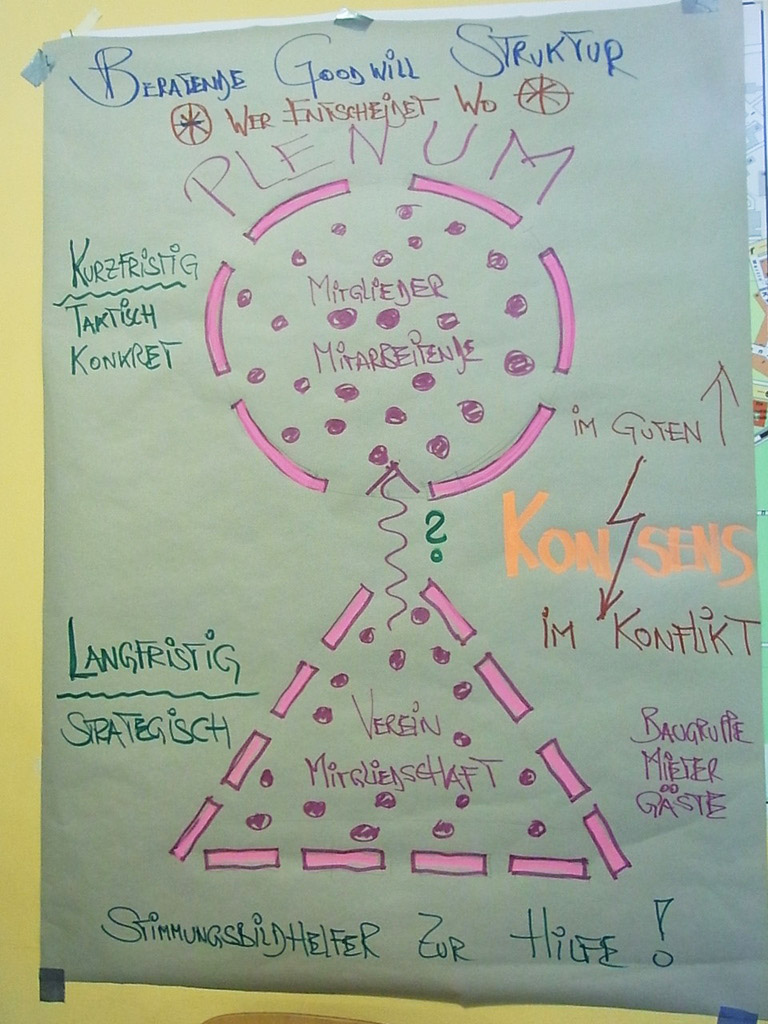 BERATENDE GOODWILL STRUKTUR
WER ENTSCHEIDET WO
PLENUM
KURZFRISTIG
TAKTISCH
KONKRET
MITGLIEDER
MITARBEITENDE
IM GUTEN
?
KONSENS
IM KONFLIKT
LANGFRISTIG
STRATEGISCH
VEREIN
MITGLIEDSCHAFT
BAUGRUPPE
MIETER
GÄSTE
STIMMUNGSBILDHELFER ZUR HILFE !